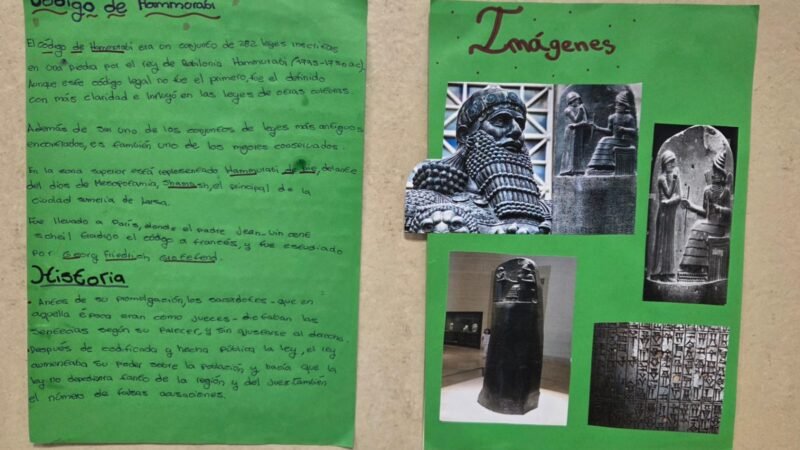 Código de Hammurabi
El código de Hammurabi era un conjunto de 282 leyes inscritas
en una piedra por el rey de Babilonia Hammurabi (1795-1750 a.c).
Aunque este código legal no fue el primero, fue el definido
con más claridad e influyó en las leyes de otras culturas.
Además de ser uno de los conjuntos de leyes más antiguos
encontrados, es también uno de los mejores conservados.
En la zona superior está representado Hammurabi de pie, delante
del dios de Mesopotamia, Shamash, el principal de la
ciudad sumeria de Larsa.
Fue llevado a París, donde el padre Jean-
Scheil tradujo el código a francés, y fue estudiado
por Georg Friedrich
Historia
• Antes de su promulgación, los sacerdotes -que en
aquella época eran como jueces- dictaban las
sentencias según su parecer, y sin ajustarse al derecho.
• Después de codificada y hecha pública la ley, el rey
aumentaba su poder sobre la población, y hacía que la
ley no dependiera tanto de la región y del juez también
el número de falsas acusaciones.
Imágenes